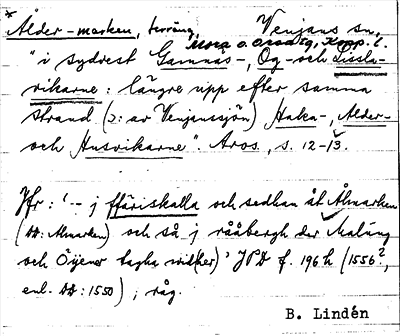 * Ålder-marken, terräng, Venjans sn,
Mora o. Orsa tg, Kopp. l.
"i sydväst Gamnäs-, Og- och Lissla-
vikarne: längre upp efter samma
strand (ɔ: av Venjanssjön) Haka-, Ålder-
och Husvikarne". Aros, s. 12-13.
Jfr: '-- j ffäriskalla och sedhan åt Ålmarken
(AA: Almarken) och så j rååbergh der Malung
och Öijener tagha widh(er)' JPÄ f. 196 h (1556?,
enl. AA: 1550); råg.
B. Lindén